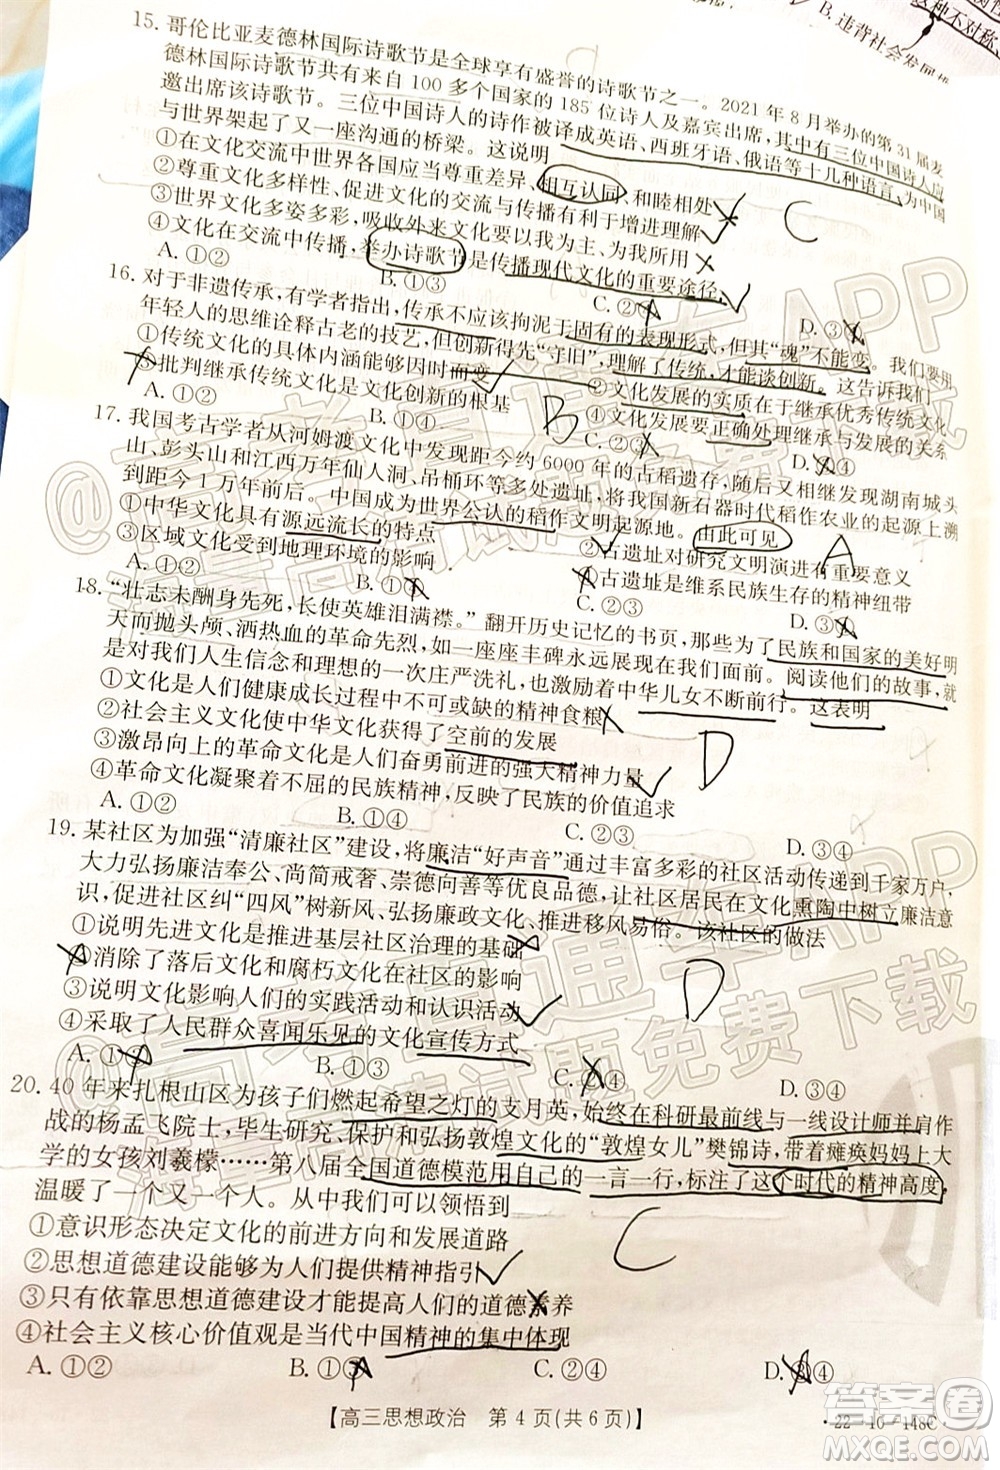 B. 违背社会发展
15. 哥伦比亚麦德林国际诗歌节是全球享有盛誉的诗歌节之一。2021 年 8 月举办的第 31 届麦
德林国际诗歌节共有来自 100 多个国家的 185 位诗人及嘉宾出席,其中有三位中国诗人应
邀出席该诗歌节。三位中国诗人的诗作被译成英语、西班牙语、俄语等十几种语言,为中国
与世界架起了又一座沟通的桥梁。这说明
①在文化交流中世界各国应当尊重差异、相互认同、和睦相处
②尊重文化多样性,促进文化的交流与传播有利于增进理解
③世界文化多姿多彩,吸收外来文化要以我为主、为我所用
④文化在交流中传播,举办诗歌节是传播现代文化的重要途径
A. ①② B. ①③ C. ②④ D. ③④
C
16. 对于非遗传承,有学者指出,传承不应该拘泥于固有的表现形式,但其“魂”不能变。我们要用
年轻人的思维诠释古老的技艺,但创新得先“守旧”,理解了传统,才能谈创新。这告诉我们
①传统文化的具体内涵能够因时而变 ②文化发展的实质在于继承优秀传统文化
③批判继承传统文化是文化创新的根基 ④文化发展要正确处理继承与发展的关系
A. ①② B. ①④ C. ②③ D. ③④
B
17. 我国考古学者从河姆渡文化中发现距今约 6000 年的古稻遗存,此后相继发现湖南城头
山、彭头山和江西万年仙人洞、吊桶环等多处遗址,将我国新石器时代稻作农业的起源上溯
到距今 1 万年前后。中国成为世界公认的稻作文明起源地。由此可见
①中华文化具有源远流长的特点 ②古遗址对研究文明演进有重要意义
③区域文化受到地理环境的影响 ④古遗址是维系民族生存的精神纽带
A. ①② B. ①④ C. ②③ D. ③④
A
18. “壮志未酬身先死,长使英雄泪满襟。”翻开历史记忆的书页,那些为了民族和国家的美好明
天而抛头颅、洒热血的革命先烈,如一座座丰碑永远屹立在我们面前。阅读他们的故事,就
是对我们人生信念和理想的一次庄严洗礼,激励着中华儿女不断前行。这表明
①文化是人们健康成长过程中不可或缺的精神食粮
②社会主义文化使中华文化获得了空前的发展
③激昂向上的革命文化是人们奋勇前进的强大精神力量
④革命文化凝聚着不屈的民族精神,反映了民族的价值追求
A. ①② B. ①④ C. ②③ D. ③④
D
19. 某社区为加强“清廉社区”建设,将廉洁“好声音”通过丰富多彩的社区活动传递到千家万户,
大力弘扬廉洁奉公、尚简戒奢、崇德向善等优良品德,让社区居民在文化熏陶中树立廉洁意
识,促进社区纠“四风”树新风、弘扬廉政文化、推进移风易俗。该社区的做法
①说明先进文化是推进基层社区治理的基础
②消除了落后文化和腐朽文化在社区的影响
③说明文化影响人们的实践活动和认识活动
④采取了人民群众喜闻乐见的文化宣传方式
A. ①② B. ①③ C. ②④ D. ③④
D
20. 40 年来扎根山区为孩子们燃起希望之灯的支月英,始终在科研最前线与一线设计师并肩作
战的杨孟飞院士,毕生研究、保护和弘扬敦煌文化的“敦煌女儿”樊锦诗,带着瘫痪妈妈上大
学的女孩刘羲檬……第八届全国道德模范用自己的一言一行,标注了这个时代的精神高度,
温暖了一个又一个人。从中我们可以领悟到
①意识形态决定文化的前进方向和发展道路
②思想道德建设能够为人们提供精神指引
③只有依靠思想道德建设才能提高人们的道德素养
④社会主义核心价值观是当代中国精神的集中体现
A. ①② B. ①③ C. ②④ D. ③④
C
【高三思想政治 第 4 页(共 6 页)】 ·22-10-148C·
答案圈
MXQE.COM